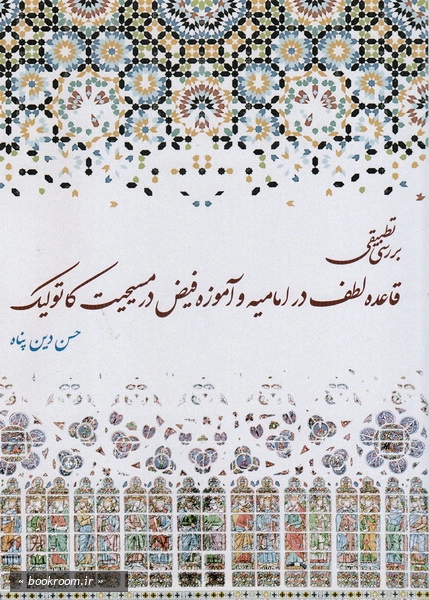 بررسی تطبیقی
قاعده لطف در امامیه و آموزه فیض در مسیحیت کاتولیک
حسن دین پناه
« bookroom.ir »